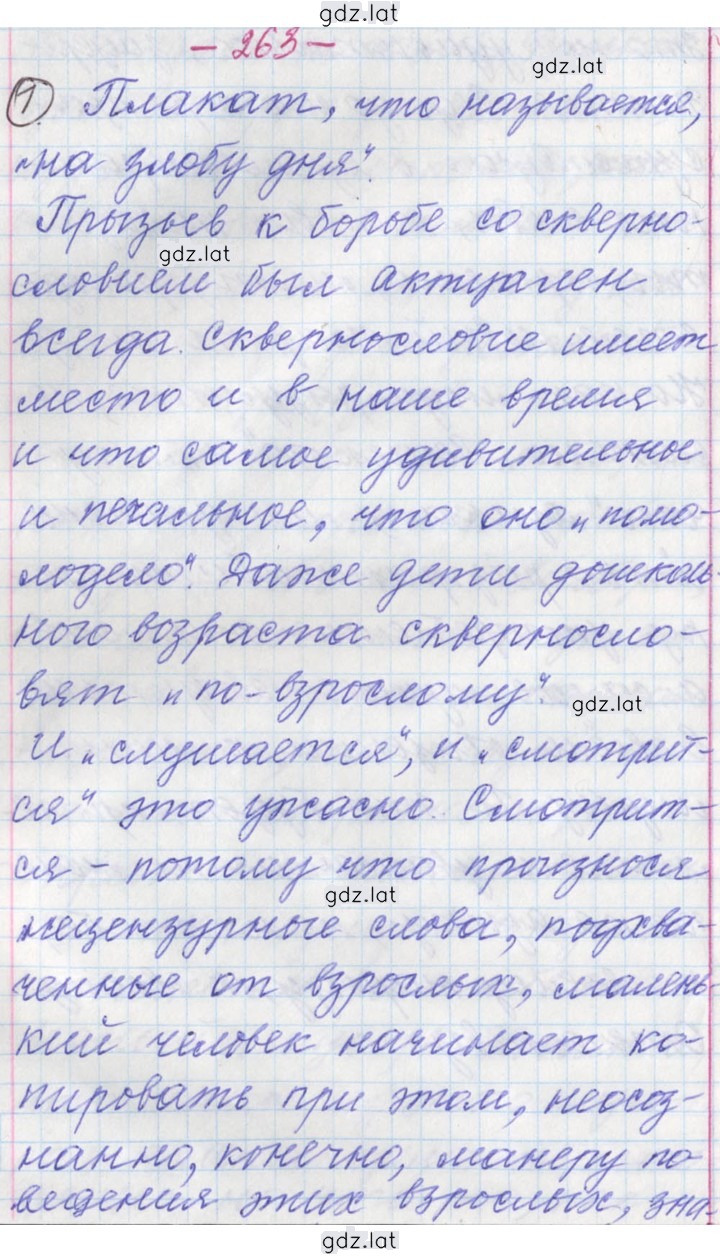 gdz.lat
- 263 -
gdz.lat
1. Плакат, что называется,
„на злобу дня“.
Призыв к борьбе со скверно-
gdz.lat
словием был актуален
всегда. Сквернословие имеет
место и в наше время
и что самое удивительное
и печальное, что оно „помо-
лодело“. Даже дети дошколь-
ного возраста скверносло-
вят „по-взрослому“.
gdz.lat
И „слушается“, и „смотрит-
ся“ это ужасно. Смотрит-
ся - потому что произнося
gdz.lat
нецензурные слова, подхва-
ченные от взрослых, малень-
кий человек начинает ко-
пировать при этом, неосоз-
нанно, конечно, манеру по
ведения этих взрослых, зна-
gdz.lat